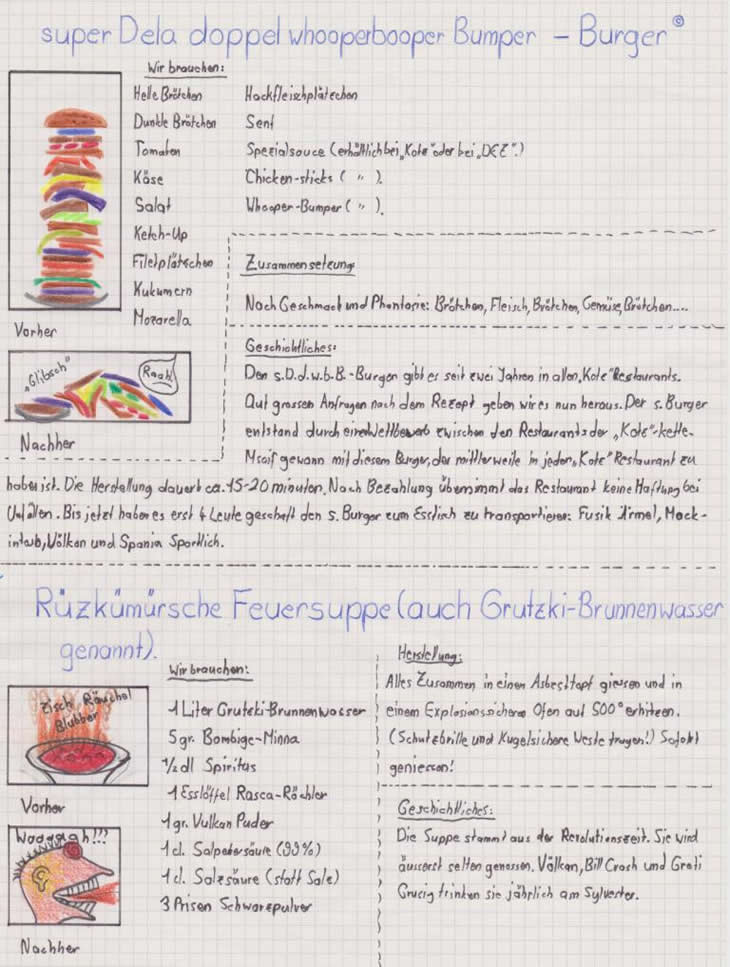 super Dela doppel whooperbooper Bumper – Burger ©
Wir brauchen:
Helle Brötchen
Dunkle Brötchen
Tomaten
Käse
Salat
Ketch-Up
Filetplätzchen
Kukumern
Mozarella
Hackfleischplätzchen
Senf
Spezialsauce (erhältlich bei „Kotz" oder bei „DEZ".)
Chicken-sticks ( " ).
Whooper-Bumper ( " ).
Vorher
„Glibsch"
Raah!
Nachher
Zusammensetzung
Nach Geschmack und Phantasie: Brötchen, Fleisch, Brötchen, Gemüse, Brötchen....
Geschichtliches:
Den s.D.d.w.b.B.-Burger gibt es seit zwei Jahren in allen „Kotz" Restaurants.
Auf grossen Anfragen nach dem Rezept geben wir es nun heraus. Der s. Burger
entstand durch einen Wettbewerb zwischen den Restaurants der „Kotz"-kette.
gewann mit diesem Burger, der mittlerweile in jeden „Kotz" Restaurant zu
haben ist. Die Herstellung dauert ca. 15-20 minuten. Nach Bezahlung übernimmt das Restaurant keine Haftung bei
Unfällen. Bis jetzt haben es erst 4 Leute geschaft den s. Burger zum Esstich zu transportieren: Fusik Ärmel, Mack-
intosh, Völkan und Spania Sportlich.
Rüzkümürsche Feuersuppe (auch Grutzki-Brunnenwasser
genannt).
Zisch Räuchel
Blubber
Vorher
Waaaaah!!!
Nachher
Wir brauchen:
1 Liter Grutzki-Brunnenwasser
5 gr. Bombige-Minna
1/2 dl Spiritus
1 Esslöffel Rasca-Rächler
1 gr. Vulkan Puder
1 cl. Salpetersäure (99%)
1 cl. Salzsäure (statt Salz)
3 Prisen Schwarzpulver
Herstellung:
Alles Zusammen in einen Asbesttopf giessen und in
einem Explosionssicheren Ofen auf 500° erhitzen.
(Schutzbrille und Kugelsichere Weste tragen!) Sofort
geniessen!
Geschichtliches:
Die Suppe stammt aus der Revolutionszeit. Sie wird
äusserst selten genossen. Völkan, Bill Crash und Grati
Grusig trinken sie jährlich am Sylvester.